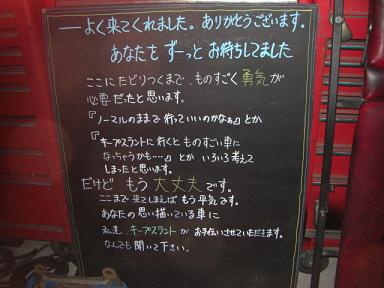 ──よく来てくれました。ありがとうございます。
あなたを ずーっと お待ちしてました
ここにたどりつくまで、ものすごく勇気が
必要だったと思います。
『ノーマルのままで行っていいのかなぁ』とか
『キープスラントに行くとものすごい車に
なっちゃうかも…』とか、いろいろ考えて
しまったと思います。
だけど もう 大丈夫です。
ここまで来てしまえばもう平気です。
あなたの思い描いている車に
私達、キープスラントがお手伝いさせていただきます。
なんでも聞いて下さい。